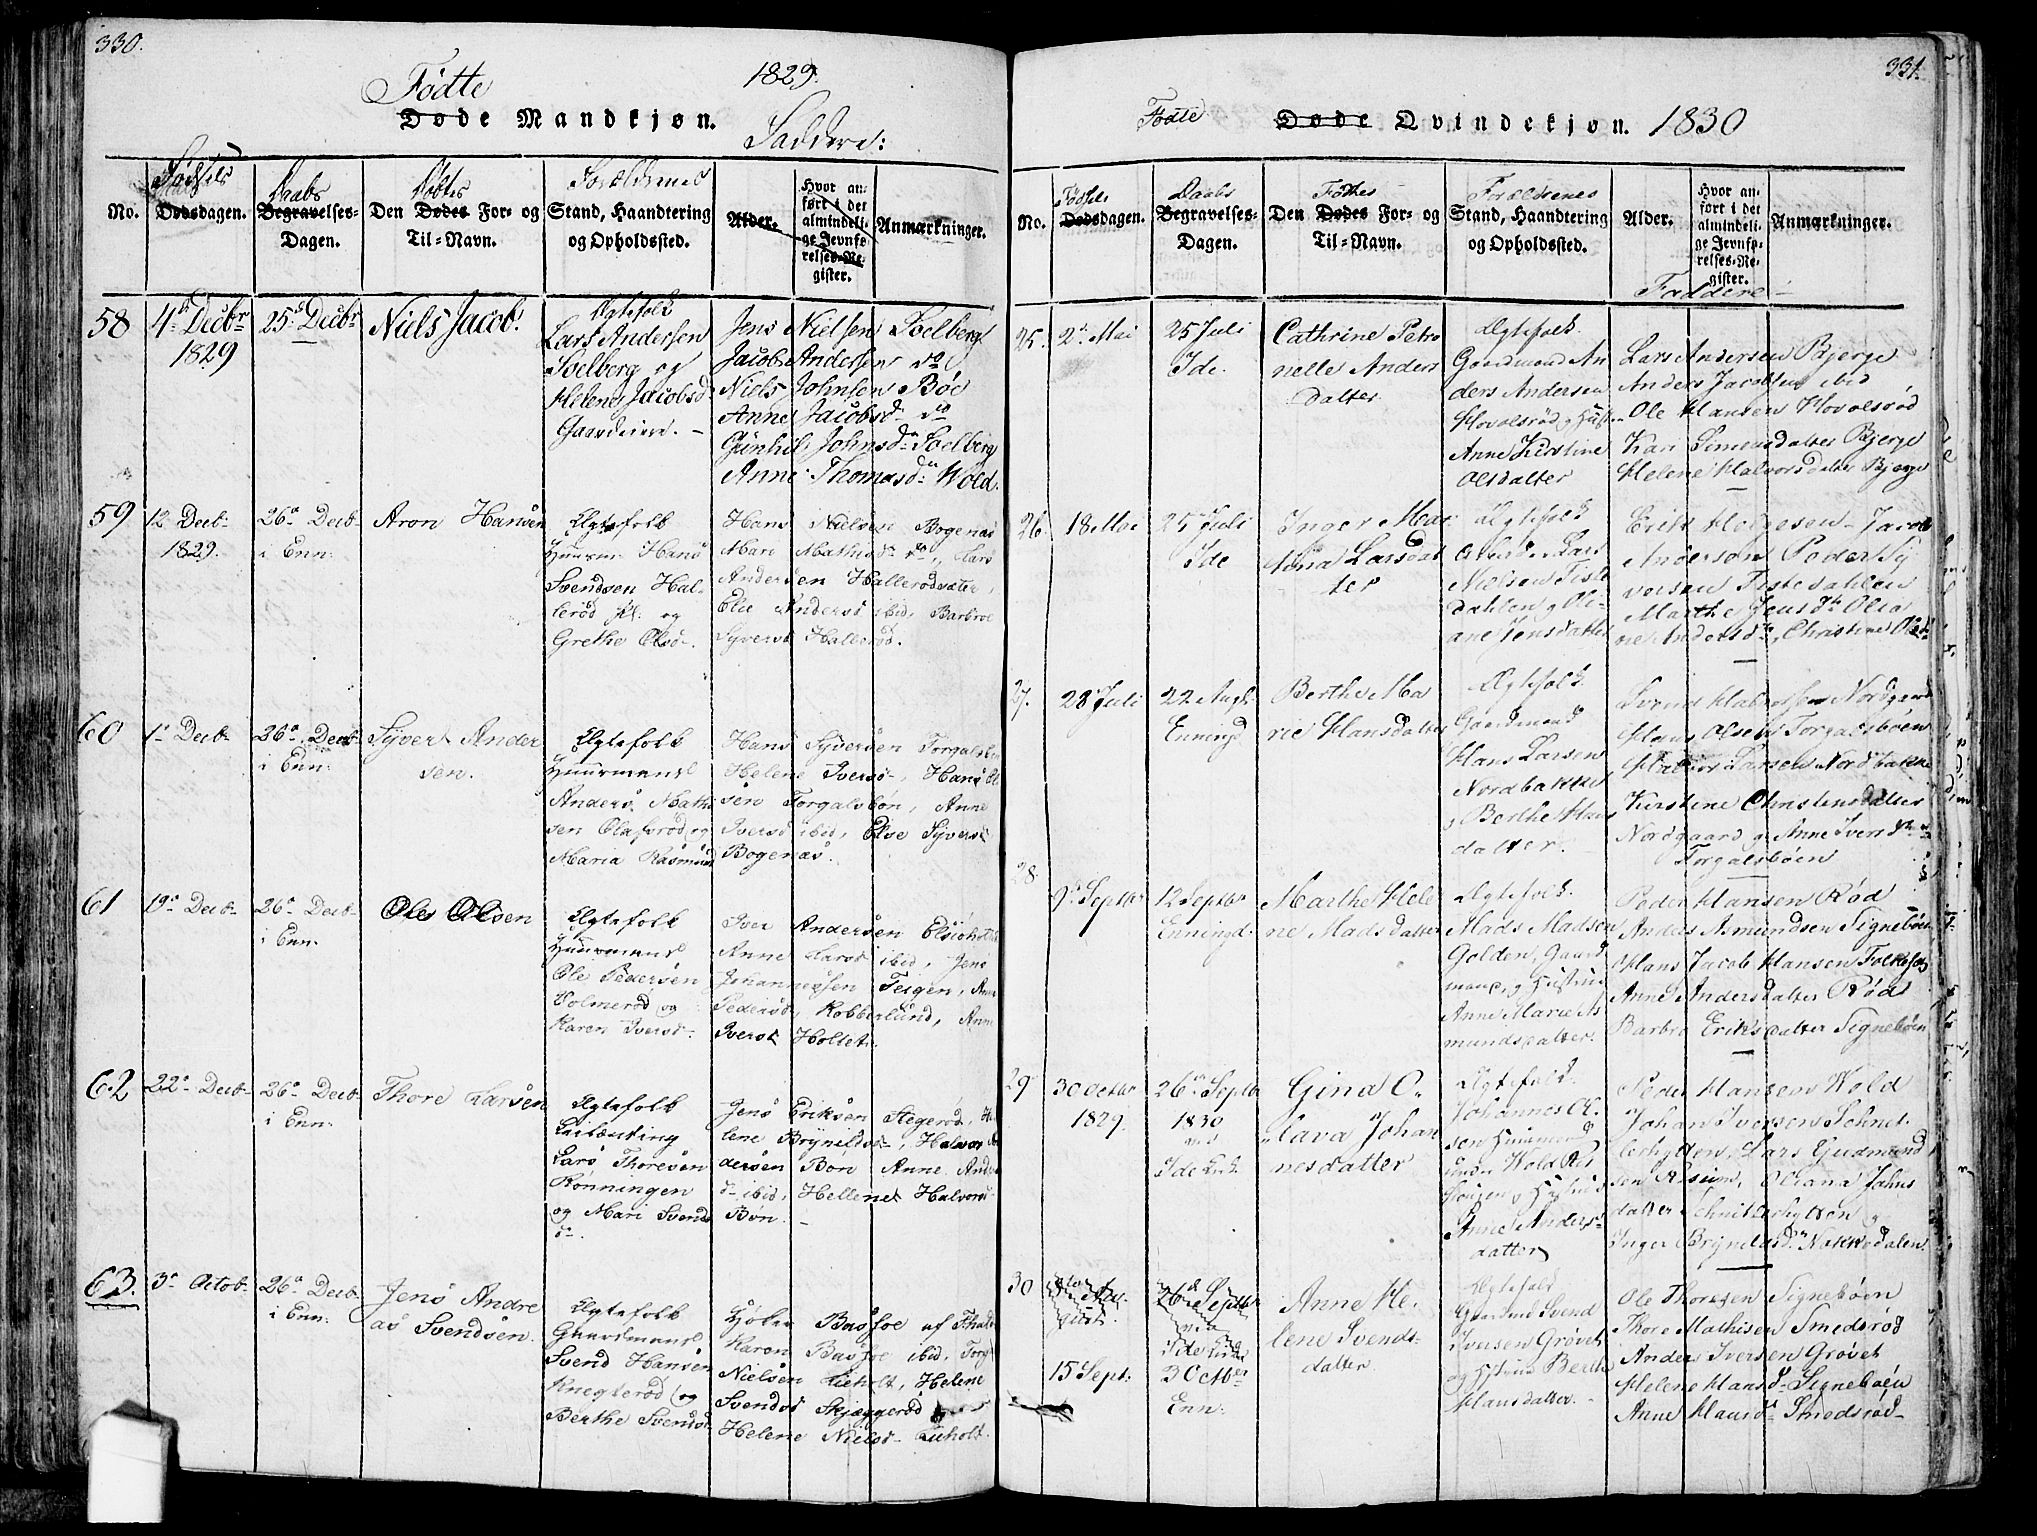 330.
Fødte 1829.
Døde Mandkjøn.
Faddere:
No.
Fødsels
Dødsdagen.
Daabs
Begravelses-
Dagen.
Døbtes
Den Dødes For- og
Til-Navn.
Forældrenes
Stand, Haandtering
og Opholdssted.
Alder.
Hvor an-
ført i det
almindeli-
ge Jevnfø-
relses-Re-
gister.
Anmærkninger.
58 4de Decbr
1829
25de Decbr
Niels Jacob.
Ægtefolk
Lars Andersen
Soelberg og
Helene Jacobsd
Gaardeiere. –
Jens Nielsen Soelberg
Jacob Andersen do
Niels Johnsen Böe
Anne Jacobsd do
Gunhil Johnsd Soelberg
Anne Thomasd Wold.
59 12 Decb
1829.
26 Decb
i Enn:
Aron Hansen
Ægtefolk
Huusm. Hans
Svendsen Hal-
lerød og
Grethe Olsd.
Hans Nielsen Bogenæs
Mari Mathisd do, Lars
Andersen Hallerødsæter,
Elie Andersd ibid, Barbroe
Syversd Hallerød.
60 1 Decb
26 Decb
i Enn:
Syver Ander
sen.
Ægtefolk
Huusmand
Anders Math
sen Olafsrød og
Maria Rasmusd
Hans Syversen Torgalsbøn
Helene Iversd, Hans Ol
sen Torgalsbøn, Anne
Iversd ibid, Else Syversd
Bogenæs.
61 19 Decb
26 Decb
i Enn.
Ole Olsen
Ægtefolk
Huusmand
Ole Pedersen
Holmerød og
Karen Iversd.
Iver Andersen
Anne Larsd ibid, Jens
Johannessen Teigen, Anne
Pedersd, Kobberlund, Anne
Iversd Holtet.
62 22 Decb
26 Decb
i Enn:
Thore Larsen
Ægtefolk
Leilænding
Lars Thoresen
Rønningen
og Mari Svends
d.
Jens Eriksen Stegerød, He
lene Brynelds, Halvor An
dersen Bøn Anne Anders
d ibid, Hellene Halvorsd
Bøn. –
63. 3 Octob
26 Decb
i Enn:
Jens Andre
as Svendsen.
Ægtefolk
Gaardmand
Svend Hansen
Knegterød og
Berthe Svendsd
Bassøe af Fhald
Karen Basøe ibid,
Nielsen Lieholt, Helene
Svendsd Skjæggerød
Helene Nielsd Lieholt.
331.
Fødte
Døde Qvindekjøn. 1830
No.
Fødsels
Dødsdagen.
Daabs
Begravelses-
Dagen.
Fødtes
Den Dødes For- og
Til-Navn.
Forældrenes
Stand, Haandtering
og Opholdssted.
Alder.
Hvor an-
ført i det
almindeli-
ge Jevnfø-
relses-Re-
gister.
Anmærkninger.
Faddere
25. 2 Mai
25 Juli
Ide.
Cathrine Petro
nelle Anders
datter
Ægtefolk.
Gaardmand An
ders Andersen
Hovolsrød
Anne Kirstine
Olsdatter
Lars Andersen Bjerge
Anders Jacobsen ibid
Ole Hansen Hovolsrød
Kari Simensdatter Bjerge
Helene Halvorsdatter Bjerge
26. 18 Mai
25 Juli
Ide
Inger Mar
Larsdat
ter
Ægtefolk
Lars
Nielsen Tiste
dahlen og Ole-
ane Jensdatter
Erik Helgesen Jacob
Andersen Peder Sy
versen Tistedahlen
Marthe Jensdtr Olea
ne Andersdtr, Christine Olsd
27. 28 Juli
22 Augt
Enningd
Berthe Ma
rie Hansdatter
Ægtefolk
Gaardmand
Hans Larsen
Nordbakke
og Berthe Hans
datter.
Svend Halvorsen Nordgaard
Hans Olsen Torgalsbøen
Halvor Larsen Nordbakke
Kirstine Christensdatter
Nordgaard og Anne Iversdtr
Torgalsbøen
28. 9 Septbr
12 Septbr
Enningd.
Marthe Hele
ne Madsdatter
Ægtefolk.
Mads Madsen
Golden, Gaard
mand, og Hustrue
Anne Marie As
mundsdatter.
Peder Hansen Rød
Anders Asmundsen Signebøen
Hans Jacob Hansen
Anne Andersdatter Rød
Barbro Eriksdatter Signebøen
29. 30 Octbr
1829.
26 Septbr
1830
ved
Ide Kirk.
Gina O-
lava Johan
nesdatter
Ægtefolk.
Johannes Ol
sen Huusmand
under Wold
og Hustrue
Anne Anders-
datter
Peder Hansen Wold
Johan Iversen Schnit-
lerhytten, Lars Gudmund
sen Risum, Oleana Johns
datter Schnitlerhytten og
Inger Bryneldsd Nokkedalen.
30 Au-
gust.
15 Sept:
26 Septbr
ved
Ide Kirke
3 Octber
Enn:
Anne He-
lene Svends-
datter.
Ægtefolk
Gaardmd Svend
Iversen Grøvet
og Hustrue Berthe
Hansdatter.
Ole Thoresen Signebøen
Thore Mathisen Smedsrød
Anders Iversen Grøvet
Helene Hansd Signebøen
Anne Hansd Smedsrød